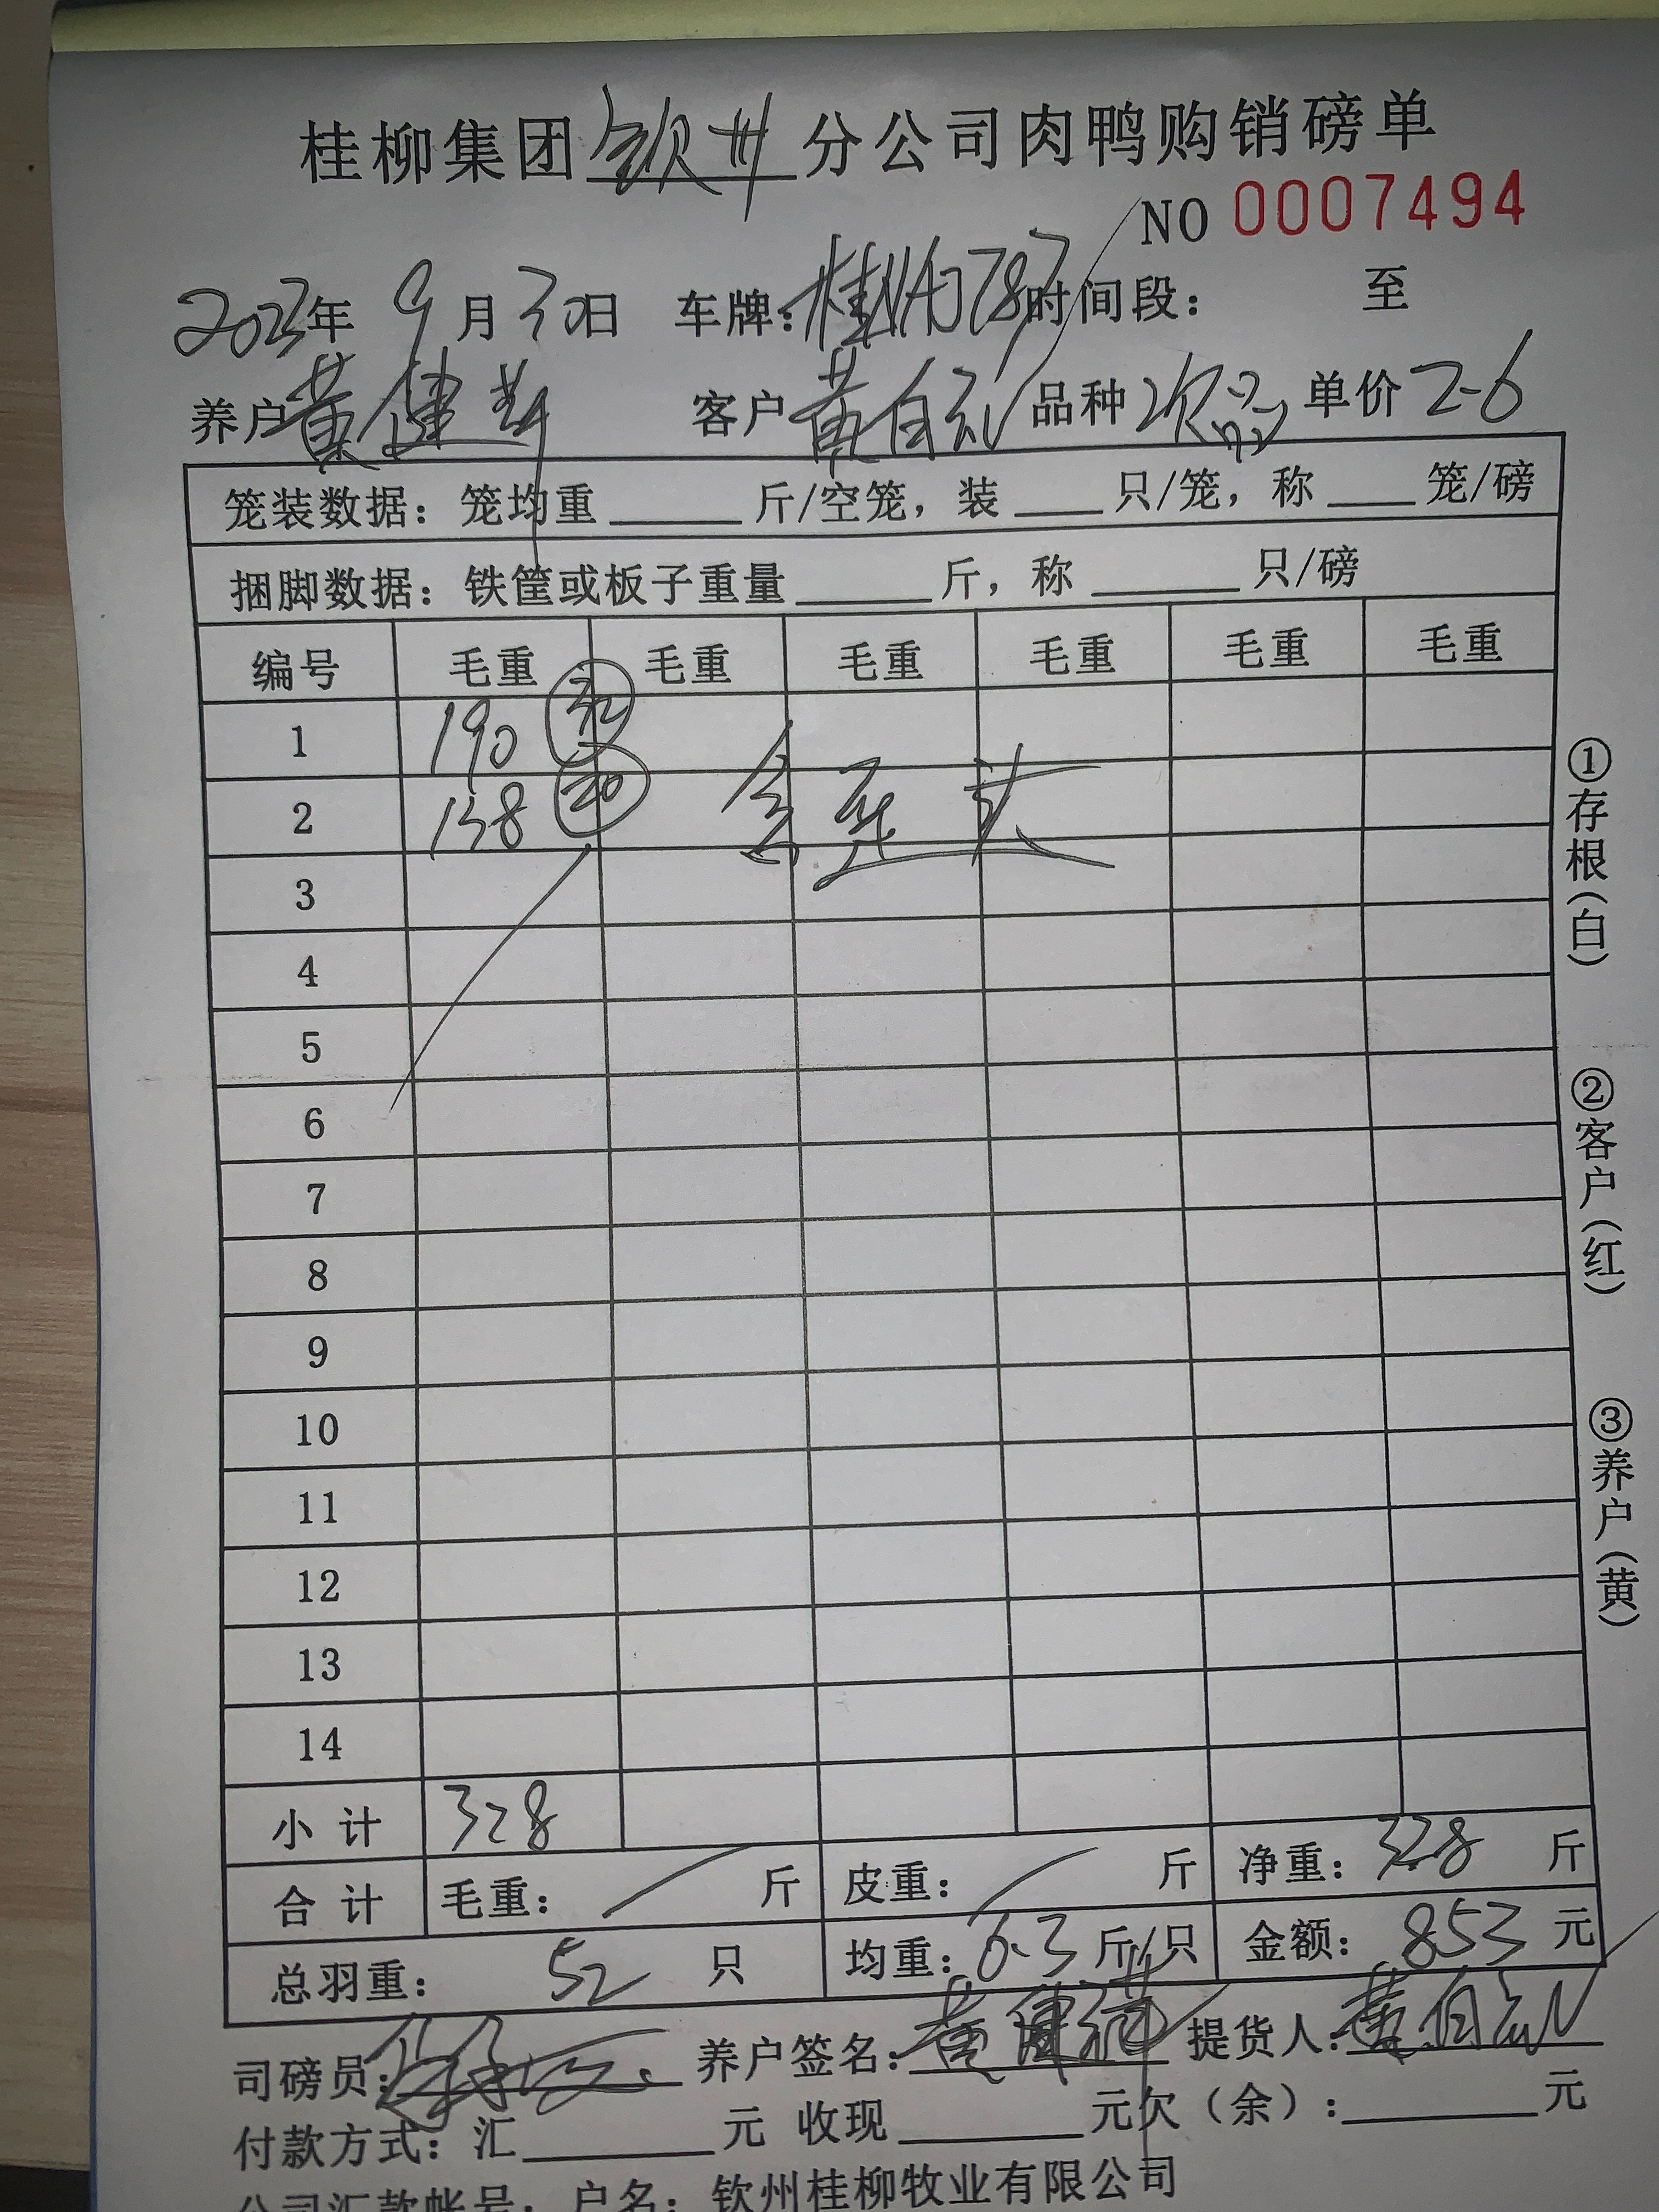 桂柳集团钦州分公司肉鸭购销磅单
NO 0007494
2023年 9月30日 车牌：桂NA0787 时间段： 至
养户 黄健 客户 黄自 品种 次品 单价 2-6
笼装数据：笼均重____斤/空笼，装____只/笼，称____笼/磅
捆脚数据：铁筐或板子重量____斤，称____只/磅
编号 毛重 毛重 毛重 毛重 毛重 毛重
1 190 32
2 138 20
3
4
5
6
7
8
9
10
11
12
13
14
小计 328
合计 毛重： 斤 皮重： 斤 净重：328 斤
总羽重： 52 只 均重：6.3 斤/只 金额：853 元
司磅员： 养户签名：黄健 提货人：黄自
付款方式：汇____元 收现____元欠（余）：____元
公司汇款帐号：户名：钦州桂柳牧业有限公司
①存根（白）
②客户（红）
③养户（黄）